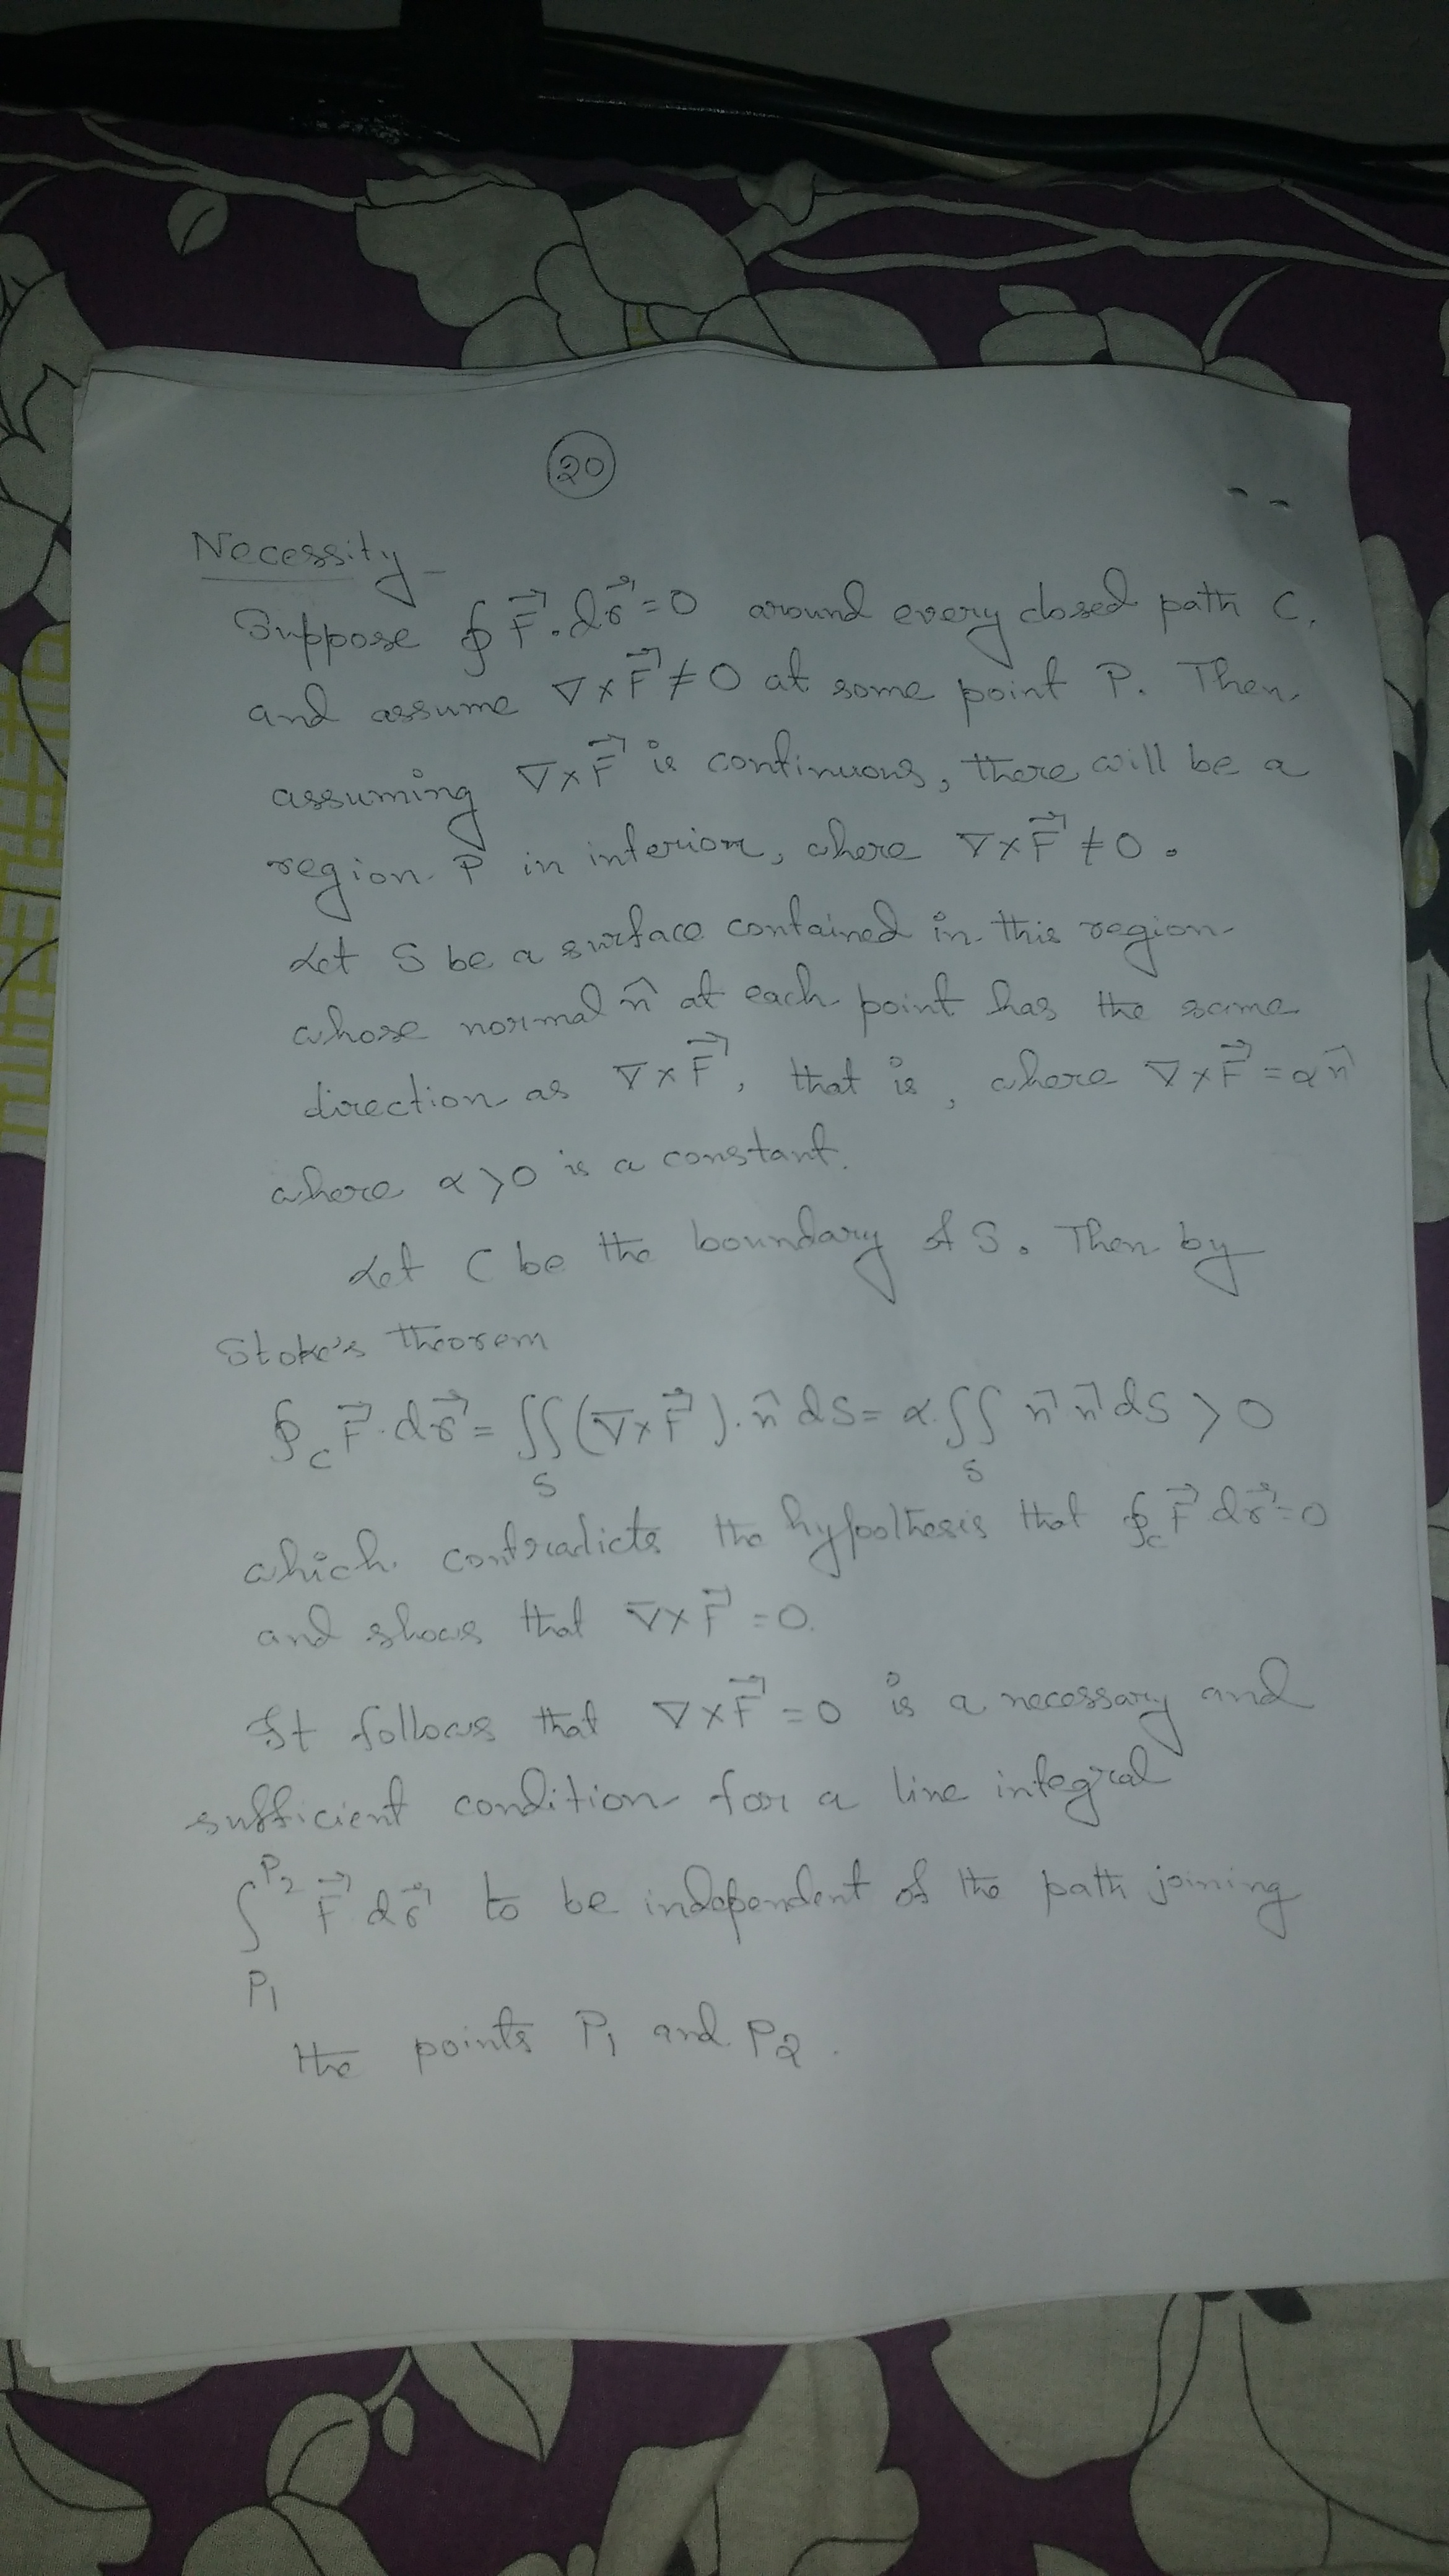 20
Necessity -
Suppose ∮ F⃗ . dr⃗ = 0 around every closed path C.
and assume ∇ × F⃗ ≠ 0 at some point P. Then
assuming ∇ × F⃗ is continuous, there will be a
region P in interior, where ∇ × F⃗ ≠ 0.
Let S be a surface contained in this region
whose normal n̂ at each point has the same
direction as ∇ × F⃗, that is, where ∇ × F⃗ = α n̂
where α > 0 is a constant.
Let C be the boundary of S. Then by
Stoke's theorem
∮_C F⃗ . dr⃗ = ∬_S (∇ × F⃗) . n̂ dS = α . ∬_S n̂ n̂ dS > 0
which contradicts the hypothesis that ∮_C F⃗ dr⃗ = 0
and shows that ∇ × F⃗ = 0.
It follows that ∇ × F⃗ = 0 is a necessary and
sufficient condition for a line integral
∫_{P1}^{P2} F⃗ dr⃗ to be independent of the path joining
the points P1 and P2.